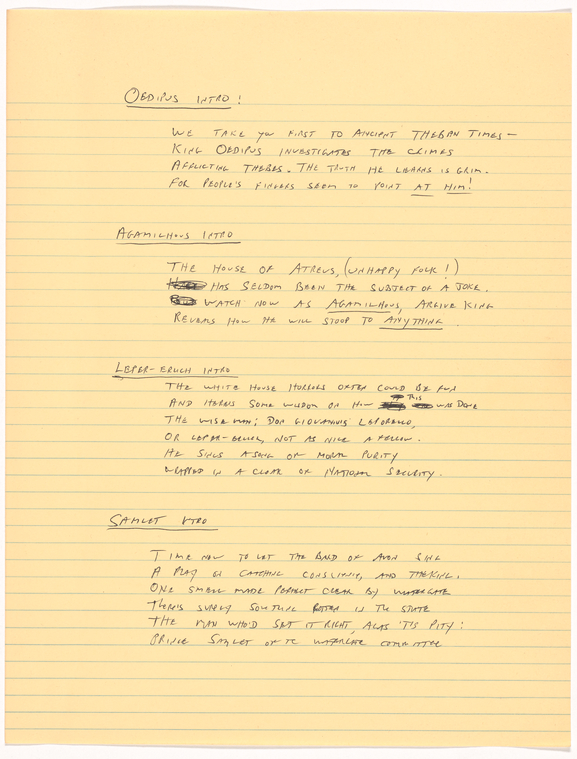 OEDIPUS INTRO!
WE TAKE YOU FIRST TO ANCIENT THEBAN TIMES —
KING OEDIPUS INVESTIGATES THE CRIMES
AFFLICTING THEBES. THE TRUTH HE LEARNS IS GRIM.
FOR PEOPLE'S FINGERS SEEM TO POINT AT HIM!
AGAMILHOUS INTRO
THE HOUSE OF ATREUS, (UNHAPPY FOLK!)
HAS SELDOM BEEN THE SUBJECT OF A JOKE.
WATCH NOW AS AGAMILHOUS, ARGIVE KING
REVEALS HOW HE WILL STOOP TO ANYTHING.
LEPER-ELUCH INTRO
THE WHITE HOUSE HORRORS OFTEN COULD BE FUN
AND HERE'S SOME WISDOM ON HOW THIS WAS DONE
THE WISE MAN; DON GIOVANNI'S LEPORELLO,
OR LEPER-ELUCH, NOT AS NICE A FELLOW.
HE SINGS A SONG OF MORAL PURITY
WRAPPED IN A CLOAK OF NATIONAL SECURITY.
SAMLET INTRO
TIME NOW TO LET THE BARD OF AVON SING
A PLAY ON CATCHING CONSCIENCE, AND THE KING.
ONE SMELL MADE PERFECT CLEAR BY WATERGATE
THERE'S SURELY SOMETHING ROTTEN IN THE STATE
THE MAN WHO'D SET IT RIGHT, ALAS 'TIS PITY:
PRINCE SAMLET OF THE WATERGATE COMMITTEE